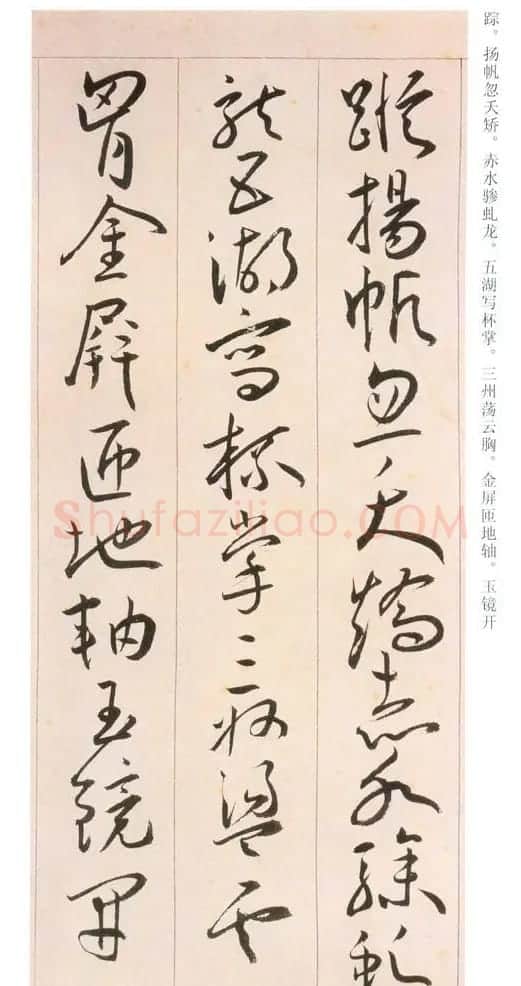 蹤揚帆忽夭矯赤水驂虬
龍五湖寫杯掌三州盪雲
胷金屏匝地軸玉鏡開
踪。扬帆忽夭矫。赤水骖虬龙。五湖写杯掌。三州荡云胸。金屏匝地轴。玉镜开
Shufaziliao.COM